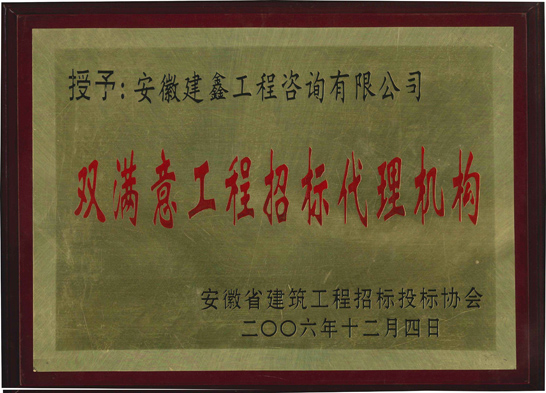 授予：安徽建鑫工程咨询有限公司
双满意工程招标代理机构
安徽省建筑工程招标投标协会
二〇〇六年十二月四日